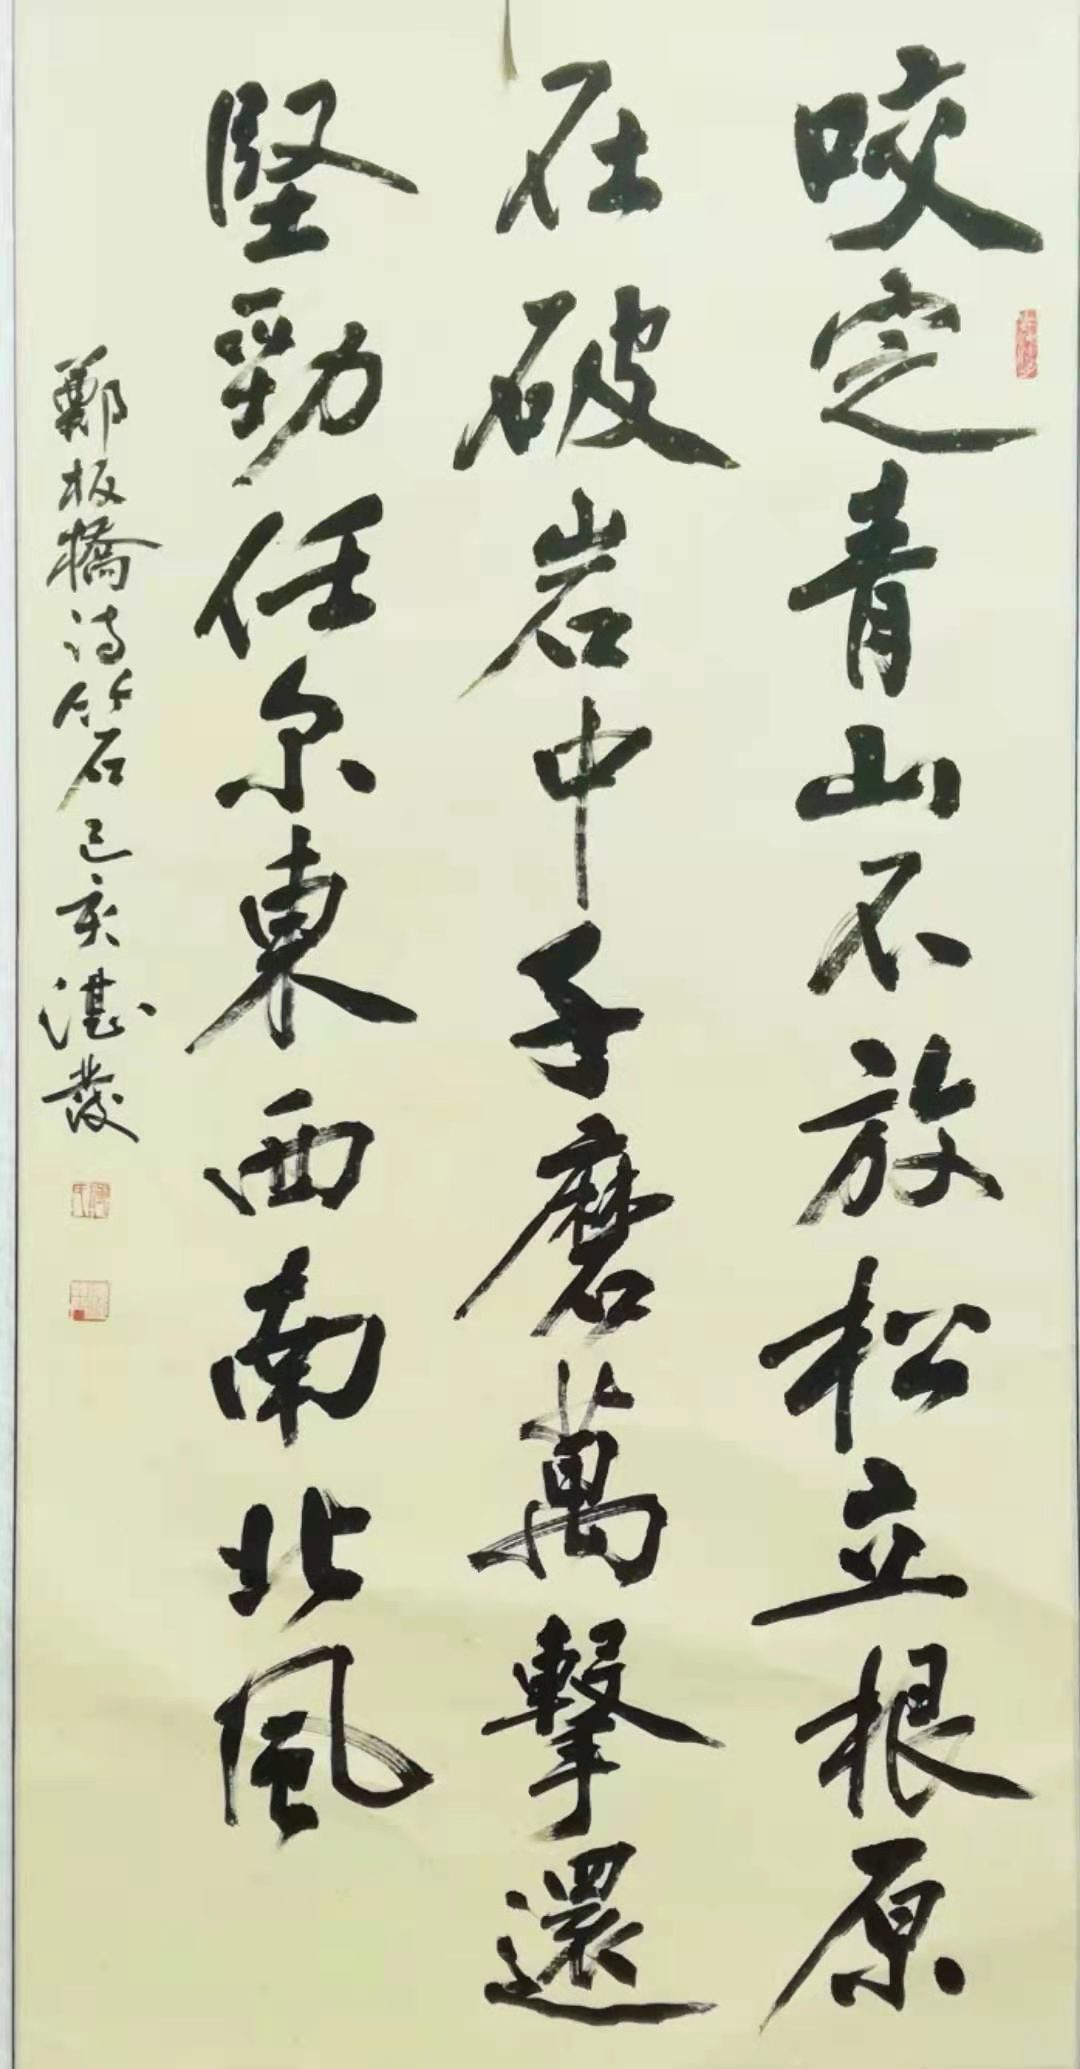 咬定青山不放松立根原
在破岩中子磨萬擊還
堅勁任尔東西南北風
鄭板橋詩竹石己亥湛發